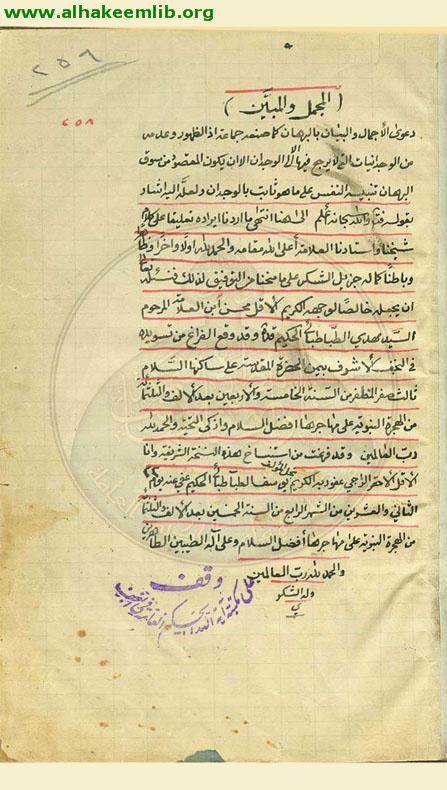 www.alhakeemlib.org
٢٥٦
٢٥٨
( المجمل والمبيَّن )
دعوى الاجمال والبيان بالبرهان كما صنعه جماعة اذ الظهور وعدمه
من الوجدانيات التي لا يرجع فيها الّا إلى الوجدان الا ان يكون المقصود من سوق
البرهان تنبيه النفس على ما هو ثابت بالوجدان ولعلّه اليه اشار
بقوله فتأمل والله سبحانه أعلم الى هنا انتهى ما اردنا ايراده تعليقا على كلام
شيخنا واستادنا العلامة أعلى الله مقامه والحمد لله اولا واخرا وظاهرا
وباطنا كما له جزيل الشكر على ما منحنا من التوفيق لذلك فنسئله تعالى
ان يجعله خالصا لوجهه الكريم الاقل محسن ابن العلامة المرحوم
السيد مهدي الطباطبائي الحكيم قده وقد وقع الفراغ من تسويده
في النجف الاشرف بيمن الحضرة المقدسة على ساكنها السلام
ثالث صفر المظفر من السنة الخامسة والأربعين بعد الالف والثلثمائة
من الهجرة النبوية على مهاجرها افضل السلام وازكى التحية والحمد لله
رب العالمين وقد فرغت من استنساخ هذه النسخة الشريفة وانا
الاقل الاحقر الراجي عفو ربه الكريم يوسف الطباطبائي الحكيم عفي عنه يوم
نجل المؤلف
الثاني والعشرين من الشهر الرابع من السنة الخمسين بعد الالف والثلثمائة
من الهجرة النبوية على مهاجرها أفضل السلام وعلى آله الطيبين الطاهرين
والحمد لله رب العالمين
وله الشكر
وقف
على مكتبة آية الله الحكيم العامة في النجف